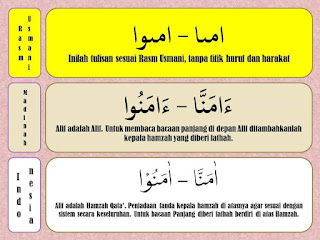 Rasm Usmani
امىا – امىوا
Inilah tulisan sesuai Rasm Usmani, tanpa titik huruf dan harakat
Madinah
ءَامَنَّا – ءَامَنُوا
Alif adalah Alif. Untuk membaca bacaan panjang di depan Alif ditambahkanlah
kepala hamzah yang diberi fathah.
Indonesia
اٰمَنَّا – اٰمَنُوْا
Alif adalah Hamzah Qata'. Peniadaan tanda kepala hamzah di atasnya agar sesuai dengan
sistem secara keseluruhan. Untuk bacaan Panjang diberi fathah berdiri di atas Hamzah.